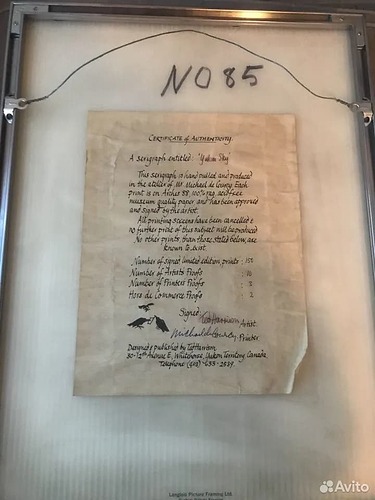 NO 85
CERTIFICATE of AUTHENTICITY.
A serigraph entitled: "Yukon Sky"
This serigraph is hand pulled and produced
in the atelier of Mr. Michael de Courcy. Each
print is on Arches 88, 100% rag, acid free
museum quality paper and has been approved
and signed by the artist.
All printing screens have been cancelled &
no further print of this subject will be produced
No other prints, than those stated below, are
known to exist.
Number of signed limited edition prints : 150
Number of Artists Proofs : 10
Number of Printers Proofs :
Hors de Commerce Proofs :
Signed: Ted Harrison Artist
Michael de Courcy Printer
Designed & published by Ted Harrison
30-12th Avenue E, Whitehorse, Yukon Territory, Canada.
Telephone (403)-633-2539.
Langlois Picture Framing Ltd.
Avito